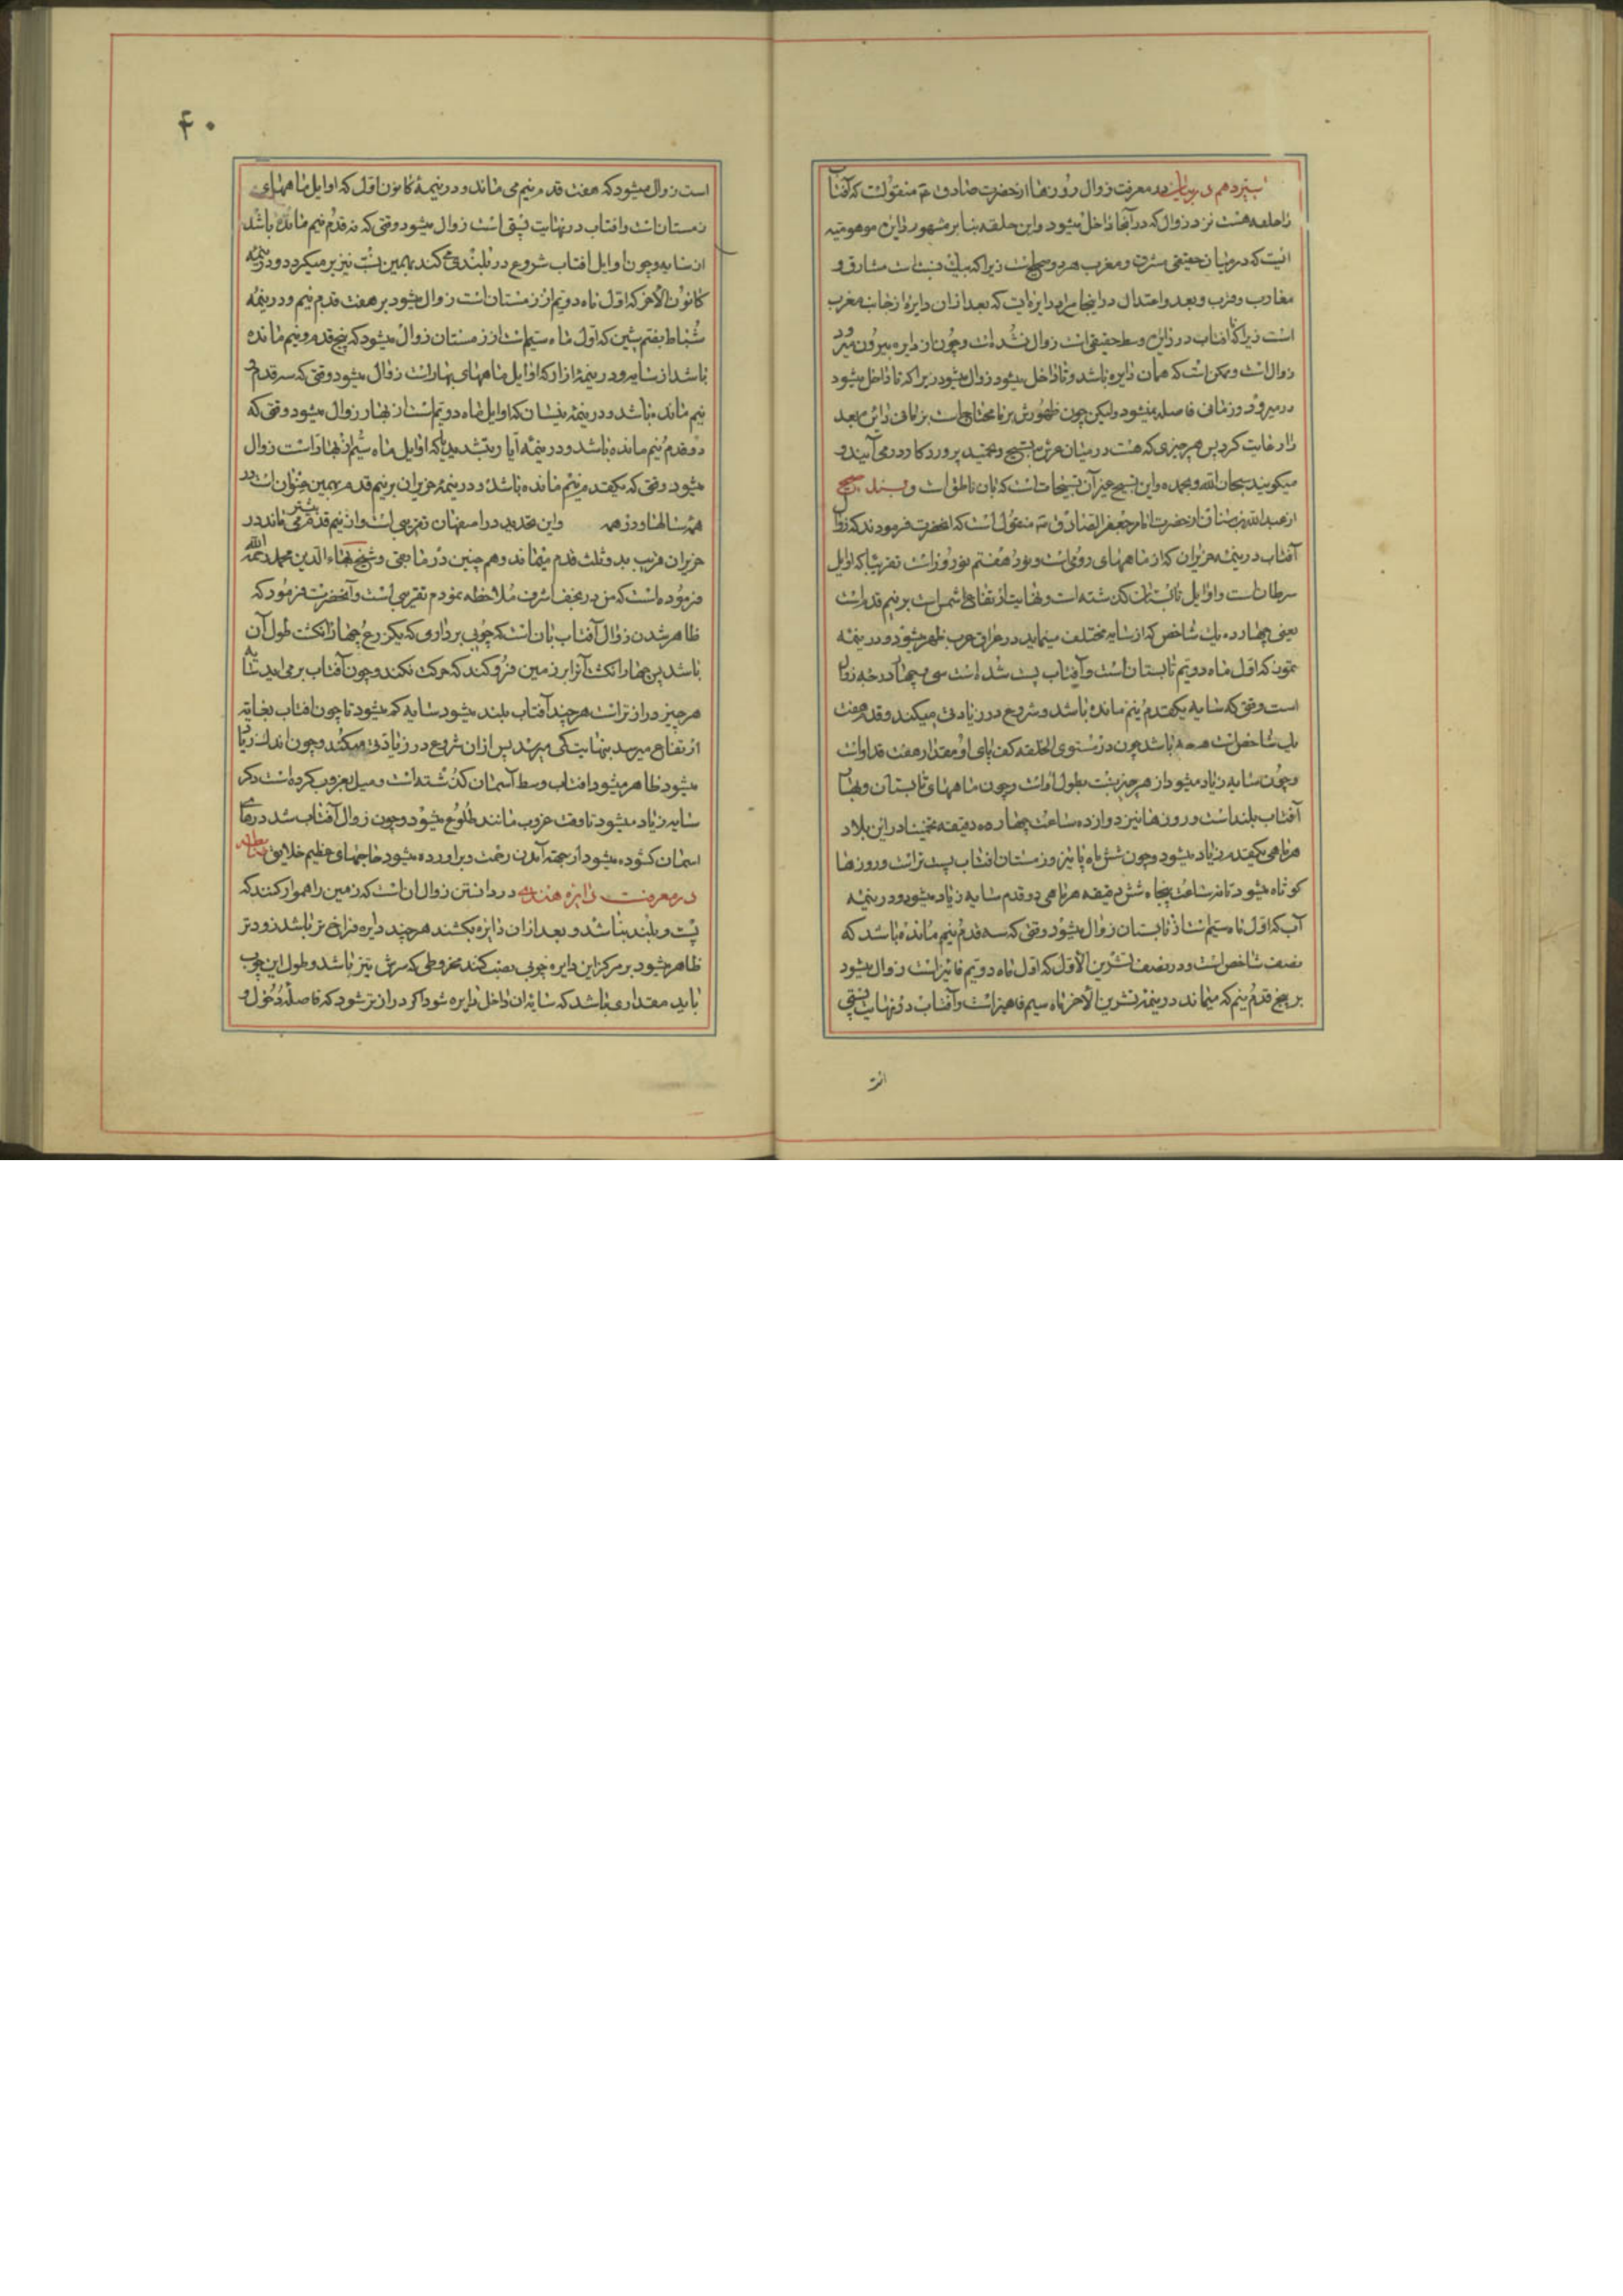 در بیان معرفت زوال روزها از حضرت صادق ع منقولست که آفتاب
را حلقه هست نزد زوال که در آنجا داخل میشود و این حلقه بنا بر مشهور دایره موهومیه
ایست که در میان حقیقی مشرق و مغرب هر دو سطحست زیرا که یک نسبت است مشارق و
مغارب و قرب و بعد و اعتدال در اینجا مراد دایره ایست که بعد از ان دایره از جانب مغرب
است زیرا که تا افتاب در دایره وسط حقیقی است زوال نشده است و چون از دایره بیرون میرود
زوال است و ممکن است که همان دایره باشد و تا داخل میشود زوال میشود زیرا که تا داخل میشود
در میرود و زمانی فاصله نمیشود ولیکن چون ظهورش بر ما محتاج است بزمانی دائره بعد
را رعایت کرد پس هر چیزی که هست در میان عرش بتسبیح و تحمید پروردکار در می آیند و
میکویند سبحان الله و بحمده و این تسبیح غیر آن تسبیحات است که بان ناطق است و بسند صحیح
از عبدالله بن سنان از حضرت امام جعفر الصادق ع منقول است که انحضرت فرمودند که زوال
آفتاب در نیمه حزیران که از ماههای رومی است و بود هفتم نوروز است تقریبا که اوایل
سرطان است و اوایل تابستان کذشته است و نهایت ارتفاع شمس است بر نیم قدم است
یعنی چهارده یک شاخص که از سایه مختلف مینماید در عراق عرب ظهر میشود و در نیمه
تموز که اول ماه دویم تابستان است و آفتاب پست شده است سی و چهار درجه زوال
است وقتی که سایه یکقدم و نیم مانده باشد و شروع در زیادتی میکند و قدم هفت
یک شاخص است هر چه باشد چون در مستوی الخلقه کف پای او مقدار هفت قد اوست
و چون سایه زیاد میشود از هر چیز نسبت بطول اوست و چون ماههای تابستان و بهار
آفتاب بلند است و روزها نیز دوازده ساعت چهارده دقیقه تخمینا در این بلاد
هر ماهی یکقدم زیاد میشود و چون شش ماه پائیز و زمستان افتاب پست تر است و روزها
کوتاه میشود تا نه ساعت پنجاه شش دقیقه هر ماهی دو قدم سایه زیاد میشود و در نیمه
آب که اول ماه سیم است از تابستان زوال میشود وقتی که سه قدم و نیم مانده باشد که
نصف شاخص است و در نصف تشرین الاول که اول ماه دویم پائیز است زوال میشود
بر پنج قدم و نیم که میماند در نیمه تشرین الآخر ماه سیم پاهیز است و آفتاب در نهایت پستی
است
۴۰
است زوال میشود که هفت قدم و نیم می ماند و در نیمه کانون اول که اوایل ماههای
زمستان است و افتاب در نهایت پستی است زوال میشود وقتی که نه قدم و نیم مانده باشد
از سایه و چون اوایل افتاب شروع در بلندی می کند بهمین نسبت نیز بر میکردد و در نیمه
کانون الآخر که اول ماه دویم از زمستان است زوال میشود بر هفت قدم و نیم و در نیمه
شباط بفتح شین که اول ماه سیم است از زمستان زوال میشود که پنج قدم و نیم مانده
باشد از سایه و در نیمه ازار که اوایل ماههای بهار است زوال میشود وقتی که سه قدم و
نیم مانده باشد و در نیمه نیسان که اوایل ماه دویم است از بهار زوال میشود وقتی که
دو قدم و نیم مانده باشد و در نیمه آیار بتشدید یا که اوایل ماه سیم از بهار است زوال
میشود وقتی که یکقدم و نیم مانده باشد و در نیمه حزیران بر نیم قدم و بهمین عنوان است در
همه سالها و در همه و این تحدید در اصفهان تقریبی است و از نیم قدم بیشتر می ماند در
حزیران قریب بدو ثلث قدم میماند و هم چنین در ماه جدی و شیخ بهاء الدین محمد رحمه الله
فرموده است که من در نجف اشرف ملاحظه نمودم تقریبی است و آنحضرت فرمود که
ظاهر شدن زوال آفتاب بان است که چوبی برداری که یک زرع و چهار انکشت طول آن
باشد پس چهار انکشت آنرا بر زمین فرو کنند که حرکت نکند و چون آفتاب بر می اید سایه
هر چیز دراز تر است هر چند آفتاب بلند میشود سایه کم میشود تا چون افتاب بغایة
ارتفاع میرسد بنهایت کمی میرسد پس از ان شروع در زیادتی میکند و چون اندک زیاد
میشود ظاهر میشود افتاب وسط آسمان کذشته است و میل بغروب کرده است دیکر
سایه زیاد میشود تا وقت غروب مانند طلوع میشود و چون زوال آفتاب شد درهای
اسمان کشوده میشود از جهة آمدن رحمت و براورده میشود حاجتهای عظیم خلایق
در معرفت دایره هندیه در دانستن زوال ان است که زمین را هموار کنند که
پست و بلند نباشد و بعد از ان دایره بکشند هر چند دایره فراخ تر باشد زودتر
ظاهر میشود بر مرکز این دایره چوبی نصب کنند مخروطی که سرش تیز باشد و طول این چوب
باید مقداری باشد که سایه ان داخل دایره شود اکر دراز تر شود که فاصله دخول و